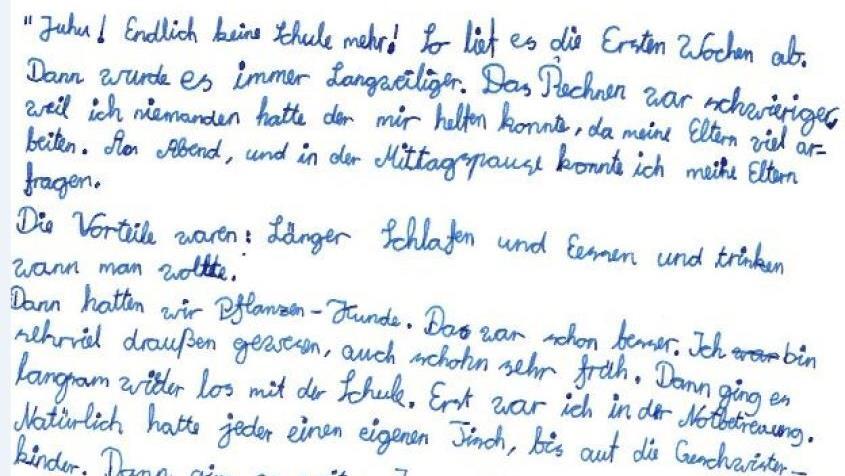 "Juhu! Endlich keine Schule mehr! So lief es die Ersten Wochen ab.
Dann wurde es immer Langweiliger. Das Rechnen war schwieriger,
weil ich niemanden hatte der mir helfen konnte, da meine Eltern viel ar-
beiten. Am Abend, und in der Mittagspause konnte ich meine Eltern
fragen.
Die Vorteile waren: Länger Schlafen und Essen und trinken
wann man wollte.
Dann hatten wir Pflanzen-Kunde. Das war schon besser. Ich war bin
sehrviel draußen gewesen, auch schohn sehr früh. Dann ging es
langsam wider los mit der Schule. Erst war ich in der Notbetreuung.
Natürlich hatte jeder einen eigenen Tisch, bis auf die Geschwister-
kinder. Dann